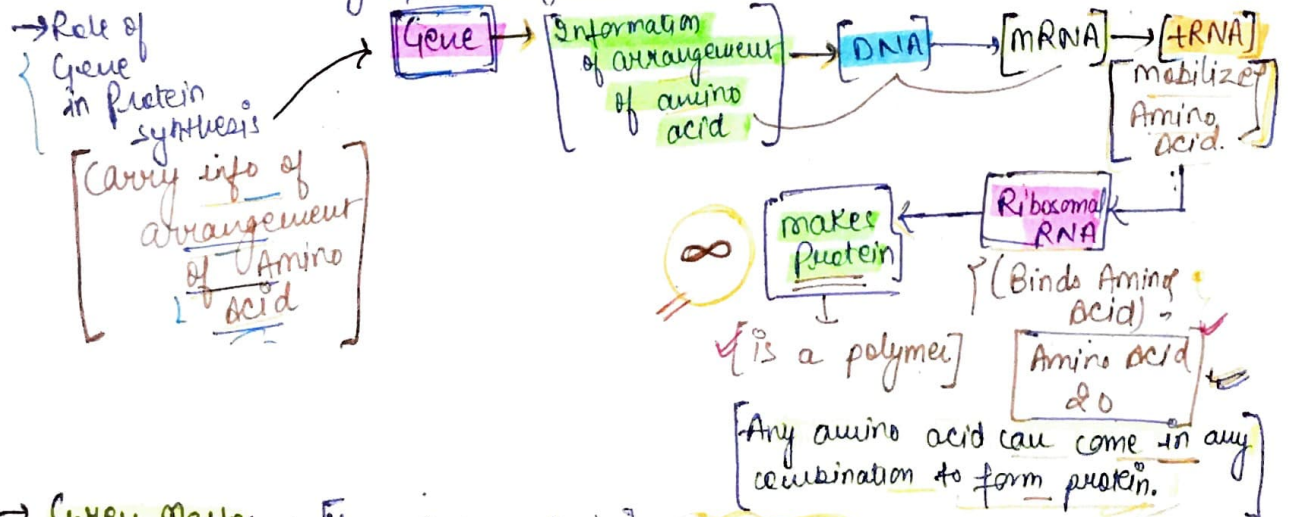 → Role of
Gene
in Protein
synthesis
[Carry info of
arrangement
of Amino
Acid]
Gene →
[Information
of arrangement
of amino
acid]
→ [DNA] → [mRNA] → [tRNA]
[mobilize
Amino
Acid.]
Ribosomal
RNA
(Binds Amino
Acid)
makes
Protein
∞
[is a polymer]
Amino Acid
20
[Any amino acid can come in any
combination to form protein.]